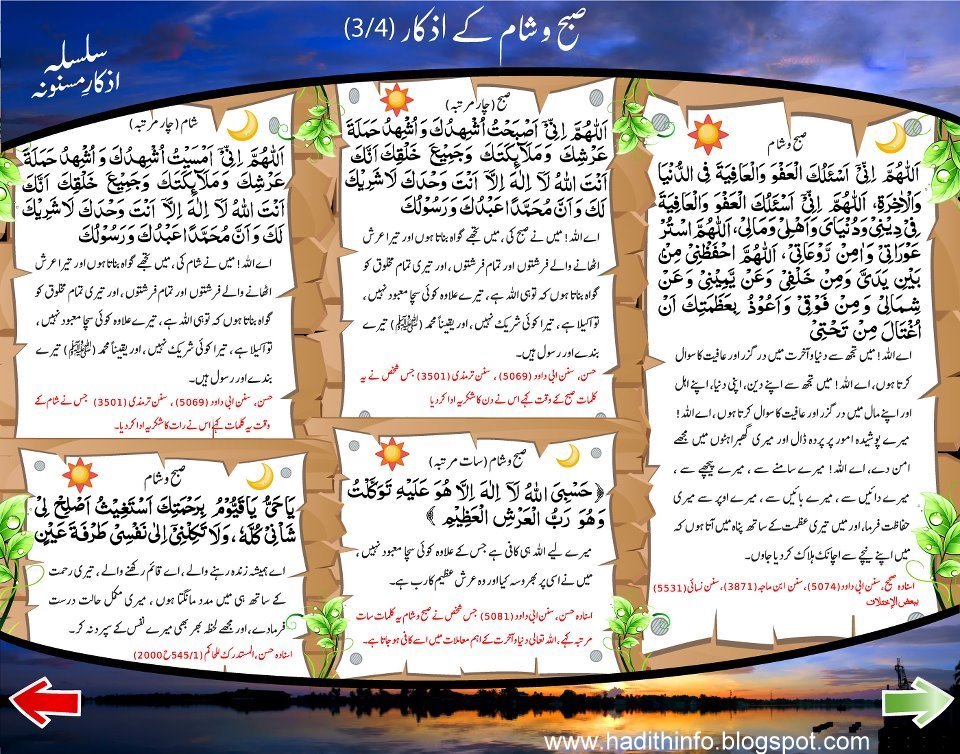 صبح و شام کے اذکار (3/4)
سلسلہ
اذکارِ مسنونہ
صبح و شام
اَللّٰهُمَّ اِنِّيْٓ اَسْئَلُكَ الْعَفْوَ وَالْعَافِيَةَ فِي الدُّنْيَا
وَالْاٰخِرَةِ، اَللّٰهُمَّ اِنِّيْٓ اَسْئَلُكَ الْعَفْوَ وَالْعَافِيَةَ
فِيْ دِيْنِيْ وَدُنْيَايَ وَاَهْلِيْ وَمَالِيْ، اَللّٰهُمَّ اسْتُرْ
عَوْرَاتِيْ وَاٰمِنْ رَّوْعَاتِيْ، اَللّٰهُمَّ احْفَظْنِيْ مِنْ
بَيْنِ يَدَيَّ وَمِنْ خَلْفِيْ وَعَنْ يَّمِيْنِيْ وَعَنْ
شِمَالِيْ وَمِنْ فَوْقِيْ وَاَعُوْذُ بِعَظَمَتِكَ اَنْ
اُغْتَالَ مِنْ تَحْتِيْ
اے اللہ! میں تجھ سے دنیا و آخرت میں درگزر اور عافیت کا سوال
کرتا ہوں، اے اللہ! میں تجھ سے اپنے دین، اپنی دنیا، اپنے اہل
اور اپنے مال میں درگزر اور عافیت کا سوال کرتا ہوں، اے اللہ!
میرے پوشیدہ امور پر پردہ ڈال اور میری گھبراہٹوں میں مجھے
امن دے، اے اللہ! میرے سامنے سے، میرے پیچھے سے،
میرے دائیں سے، میرے بائیں سے، میرے اوپر سے میری
حفاظت فرما، اور میں تیری عظمت کے ساتھ پناہ میں آتا ہوں کہ
میں اپنے نیچے سے اچانک ہلاک کر دیا جاؤں۔
اسنادہ صحیح، سنن ابی داود (5074)، سنن ابن ماجہ (3871)، سنن نسائی (5531)
ببعض الإختلات
صبح (چار مرتبہ)
اَللّٰهُمَّ اِنِّيْٓ اَصْبَحْتُ اُشْهِدُكَ وَاُشْهِدُ حَمَلَةَ
عَرْشِكَ وَمَلَآئِكَتَكَ وَجَمِيْعَ خَلْقِكَ اَنَّكَ
اَنْتَ اللهُ لَآ اِلٰهَ اِلَّآ اَنْتَ وَحْدَكَ لَا شَرِيْكَ
لَكَ وَاَنَّ مُحَمَّدًا عَبْدُكَ وَرَسُوْلُكَ
اے اللہ! میں نے صبح کی، میں تجھے گواہ بناتا ہوں اور تیرا عرش
اٹھانے والے فرشتوں اور تمام فرشتوں، اور تیری تمام مخلوق کو
گواہ بناتا ہوں کہ تو ہی اللہ ہے، تیرے علاوہ کوئی سچا معبود نہیں،
تو اکیلا ہے، تیرا کوئی شریک نہیں، اور یقیناً محمد (ﷺ) تیرے
بندے اور رسول ہیں۔
حسن، سنن ابی داود (5069)، سنن ترمذی (3501) جس شخص نے یہ
کلمات صبح کے وقت کہے اس نے دن کا شکریہ ادا کر دیا
شام (چار مرتبہ)
اَللّٰهُمَّ اِنِّيْٓ اَمْسَيْتُ اُشْهِدُكَ وَاُشْهِدُ حَمَلَةَ
عَرْشِكَ وَمَلَآئِكَتَكَ وَجَمِيْعَ خَلْقِكَ اَنَّكَ
اَنْتَ اللهُ لَآ اِلٰهَ اِلَّآ اَنْتَ وَحْدَكَ لَا شَرِيْكَ
لَكَ وَاَنَّ مُحَمَّدًا عَبْدُكَ وَرَسُوْلُكَ
اے اللہ! میں نے شام کی، میں تجھے گواہ بناتا ہوں اور تیرا عرش
اٹھانے والے فرشتوں اور تمام فرشتوں، اور تیری تمام مخلوق کو
گواہ بناتا ہوں کہ تو ہی اللہ ہے، تیرے علاوہ کوئی سچا معبود نہیں،
تو اکیلا ہے، تیرا کوئی شریک نہیں، اور یقیناً محمد (ﷺ) تیرے
بندے اور رسول ہیں۔
حسن، سنن ابی داود (5069)، سنن ترمذی (3501) جس نے شام کے
وقت یہ کلمات کہے اس نے رات کا شکریہ ادا کر دیا۔
صبح و شام (سات مرتبہ)
﴿حَسْبِيَ اللهُ لَآ اِلٰهَ اِلَّا هُوَ عَلَيْهِ تَوَكَّلْتُ
وَهُوَ رَبُّ الْعَرْشِ الْعَظِيْمِ﴾
میرے لیے اللہ ہی کافی ہے جس کے علاوہ کوئی سچا معبود نہیں،
میں نے اسی پر بھروسہ کیا اور وہ عرش عظیم کا رب ہے۔
اسنادہ حسن، سنن ابی داود (5081) جس شخص نے صبح و شام یہ کلمات سات
مرتبہ کہے، اللہ تعالیٰ دنیا و آخرت کے اہم معاملات میں اسے کافی ہو جاتا ہے۔
صبح و شام
يَا حَيُّ يَا قَيُّوْمُ بِرَحْمَتِكَ اَسْتَغِيْثُ اَصْلِحْ لِيْ
شَاْنِيْ كُلَّهُ، وَلَا تَكِلْنِيْٓ اِلٰى نَفْسِيْ طَرْفَةَ عَيْنٍ
اے ہمیشہ زندہ رہنے والے، اے قائم رکھنے والے، تیری رحمت
کے ساتھ ہی میں مدد مانگتا ہوں، میری مکمل حالت درست
فرما دے، اور مجھے لحظہ بھر بھی میرے نفس کے سپرد نہ کر۔
اسنادہ حسن، المستدرک للحاکم (545/1 ح 2000)
www.hadithinfo.blogspot.com